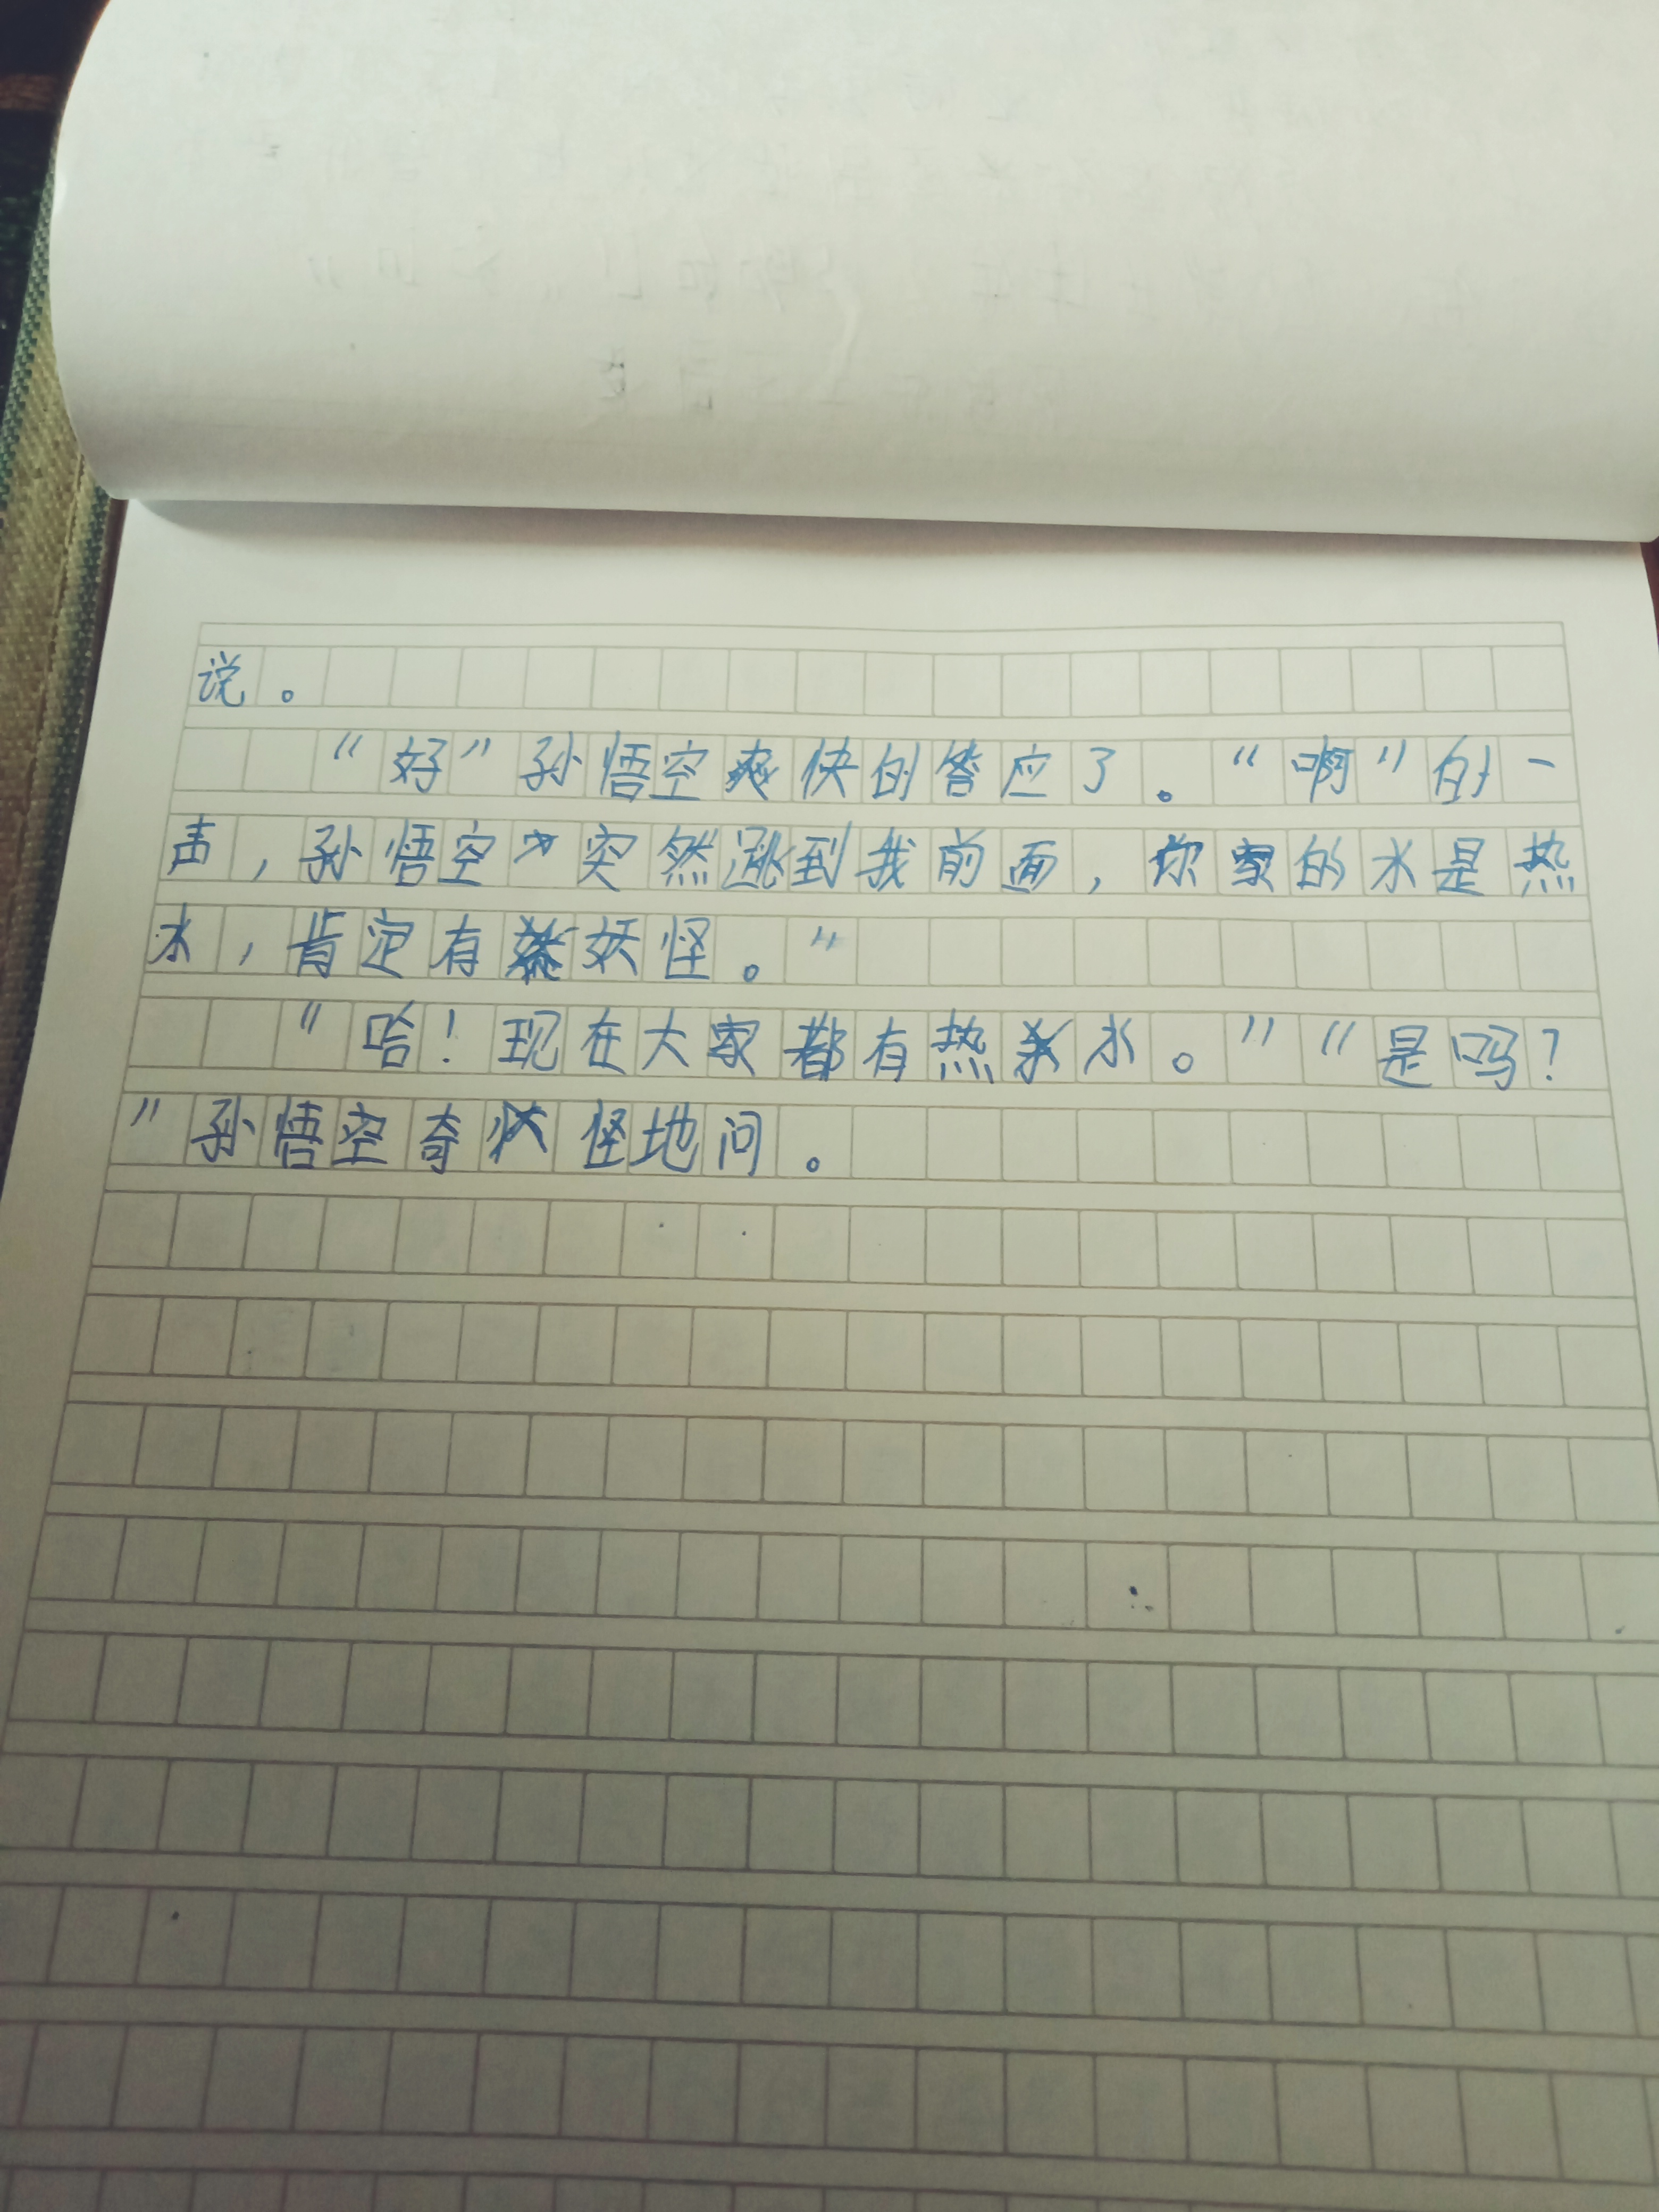 说。
“好”孙悟空爽快的答应了。“啊”的一
声，孙悟空突然跳到我前面，你家的水是热
水，肯定有妖怪。”
“哈！现在大家都有热水。”“是吗？
”孙悟空奇怪地问。